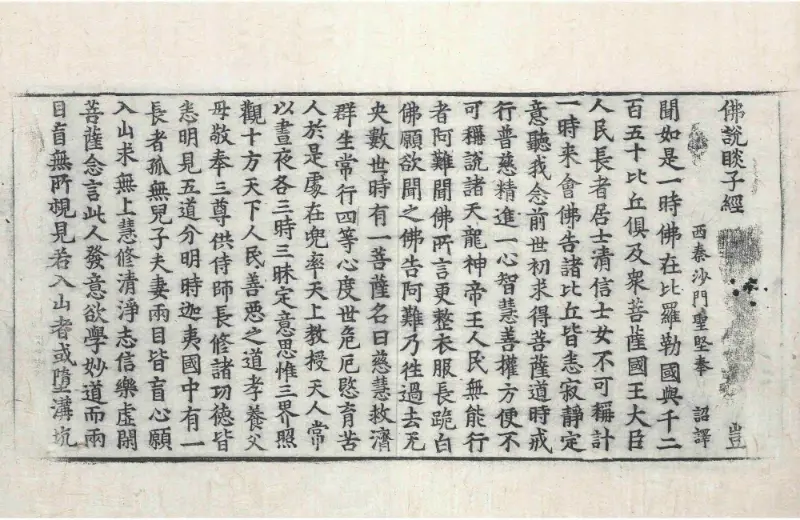 佛說睒子經 豈
西秦沙門聖堅奉 詔譯
聞如是一時佛在比羅勒國與千二
百五十比丘俱及衆菩薩國王大臣
人民長者居士清信士女不可稱計
一時来會佛告諸比丘皆悉寂靜定
意聽我念前世初求得菩薩道時戒
行普慈精進一心智慧善權方便不
可稱說諸天龍神帝王人民無能行
者阿難聞佛所言更整衣服長跪白
佛願欲聞之佛告阿難乃徃過去无
央數世時有一菩薩名曰慈慧救濟
群生常行四等心度世危厄愍育苦
人於是處在兜率天上教授天人常
以晝夜各三時三昧定意思惟三界照
觀十方天下人民善悪之道孝養父
母敬奉三尊供侍師長修諸功徳皆
悉明見五道分明時迦夷國中有一
長者孤無兒子夫妻兩目皆盲心願
入山求無上慧修清淨志信樂虛閑
菩薩念言此人發意欲學妙道而兩
目盲無所覩見若入山者或墮溝坑